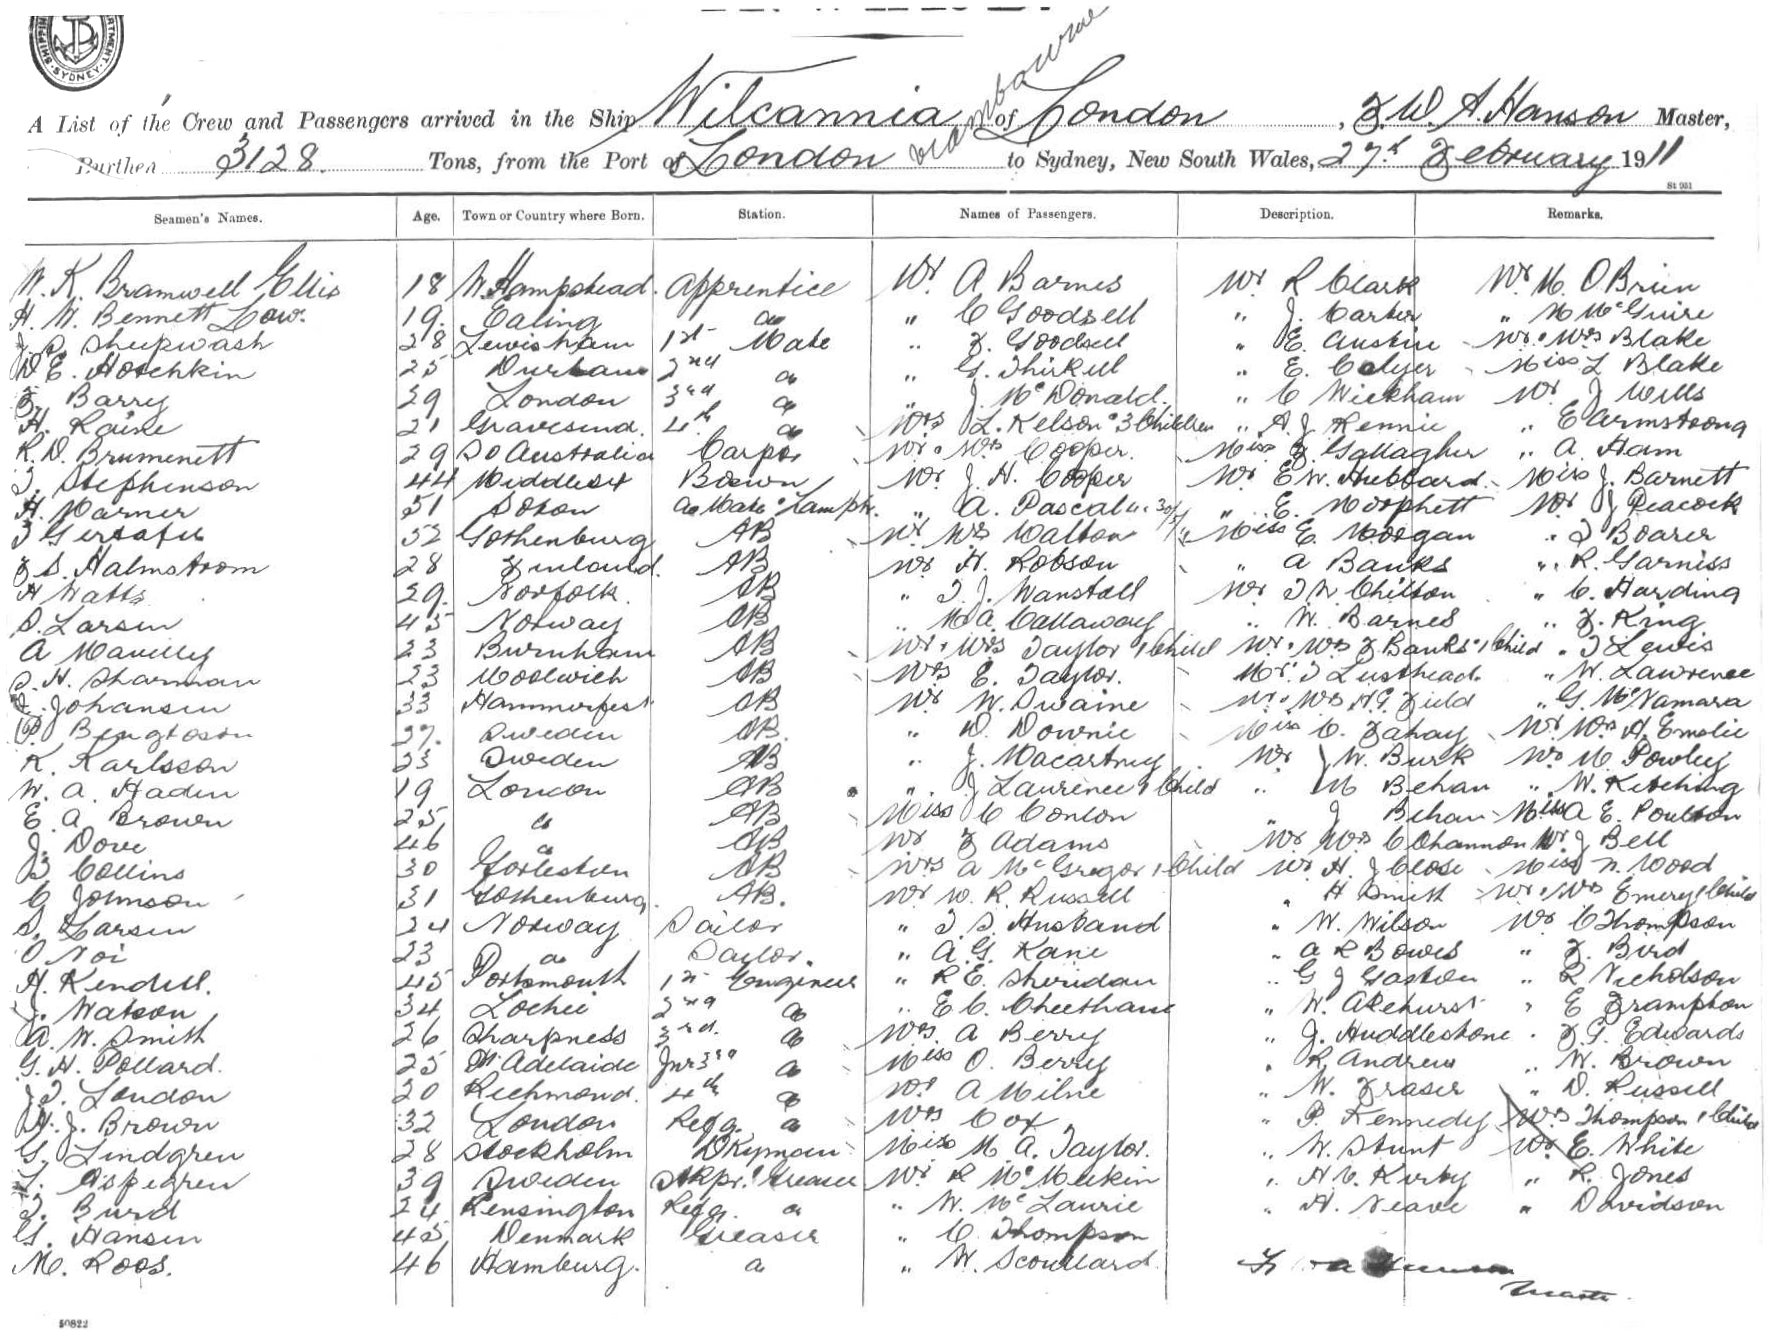 SYDNEY
A List of the Crew and Passengers arrived in the Ship Wilcannia of London, F. W. A. Hanson Master,
Burthen 3128 Tons, from the Port of London to Sydney, New South Wales, 27th February 1911
St 951
Seamen's Names. Age. Town or Country where Born. Station. Names of Passengers. Description. Remarks.
W. K. Bramwell Ellis 18 W. Hampstead. Apprentice Mr. A Barnes Mr R Clark Mr M. O'Brien
H. W. Bennett Low. 19. Ealing do " C Goodsell " J. Carter " M McGuire
J. S. Sheepwash 28 Lewisham 1st Mate " F. Goodsell " E. Austin Mr & Mrs Blake
D. E. Hotchkin 25 Durham 2nd do " G. Thirkell " E. Colyer Miss L Blake
F. Barry 29 London 3rd do " J. McDonald. " C Wickham Mr J Wells
H. Raine 21 Gravesend. 4th do Mrs L. Kelson & 3 Children " A. J Rennie " E Armstrong
R. D. Brumenett 29 So Australia Carptr Mr & Mrs Cooper. Miss F. Gallagher " A. Ham
T. Stephenson 44 Middlesex Boswn Mr. J. H. Cooper Mr E W. Hubbard. Miss J. Barnett
H. Marner 51 Do Mate & Lamptr. " A. Pascal " E. Morphett Mr J Peacock
52 Gothenburg AB Mr Mrs Walton Miss E. Morgan " T Boarer
F. S. Halmstrom 28 Finland. AB Mr H. Robson " A Banks " R. Garniss
H Watts 29. Norfolk. AB " T. J. Wanstall Mr T W Chilton " C. Harding
S. Larsen 45 Norway AB " M A. Callaway " W. Barnes " F. King
A 23 Burnham AB Mr & Mrs Taylor 1 Child Mr & Mrs F Banks & 1 Child " T Lewis
S. H. Sharman 23 Woolwich AB Mrs E. Taylor. Mr. T Lusthead. " W. Lawrence
Johansen 33 Hammerfest AB Mr W. Swaine Mr & Mrs H. G. Field " G. McNamara
Bengtsson 27. Sweden AB. " D. Downie Miss C. Fahay Mr Mrs A. Emslie
K. Karlsson 23 Sweden AB " J. Macartney Mr J W. Burk Mr M Powley
W. A. Haden 19 London AB " J Laurence & Child " M Behan " W. Kitching
E. A. Brown 25 do AB Miss C Conlon " J Behan Miss A E. Poulton
J. Dove 46 do AB Mr F Adams Mr Mrs C Channon Mr J Bell
B Collins 30 Gorleston AB Mrs A McGregor & Child Mr H. J Close Miss N. Wood
C Johnson 31 Gothenburg. AB. Mr W. R. Russell " H Smith Mr & Mrs Emery & Child
S. Larsen 24 Norway Sailor " T. S. Husband " W. Wilson Mr C Thompson
O Noi 23 do Saylor. " A. G. Kane " A R Bowes " F. Bird
H. Kendell. 45 Portsmouth 1st Engineer " R. E. Sheridan " G J Gaston " R Nicholson
J. Watson 34 Lochee 2nd do " E. C. Cheetham " W. Akehurst " E Frampton
A. W. Smith 26 Sharpness 3rd. do Mrs. A Berry " J. Huddlestone " F. G. Edwards
G. H. Pollard. 25 Pt Adelaide Jnr 3rd do Miss O. Berry " R. Andrews " W. Brown
J. T. London 20 Richmond. 4th do Mr A Milne " W. Fraser " D. Russell
H. J. Brown 32 London Refg. do Mrs Cox " P. Kennedy Mrs Thompson & Child
G. Lindgren 28 Stockholm Dkeyman Miss M A. Taylor. " W. Stunt Mr E. White
Aspegren 39 Sweden Stkpr. & Greaser Mr R McMeekin " H C. Kirby " R. Jones
T. Burd 24 Kensington Refg. do " W. McLaurie " H. Neave " Davidson
G. Hansen 45 Denmark Greaser " C. Thompson
M. Roos. 46 Hamburg. do " W. Scoullard.
Master
50822